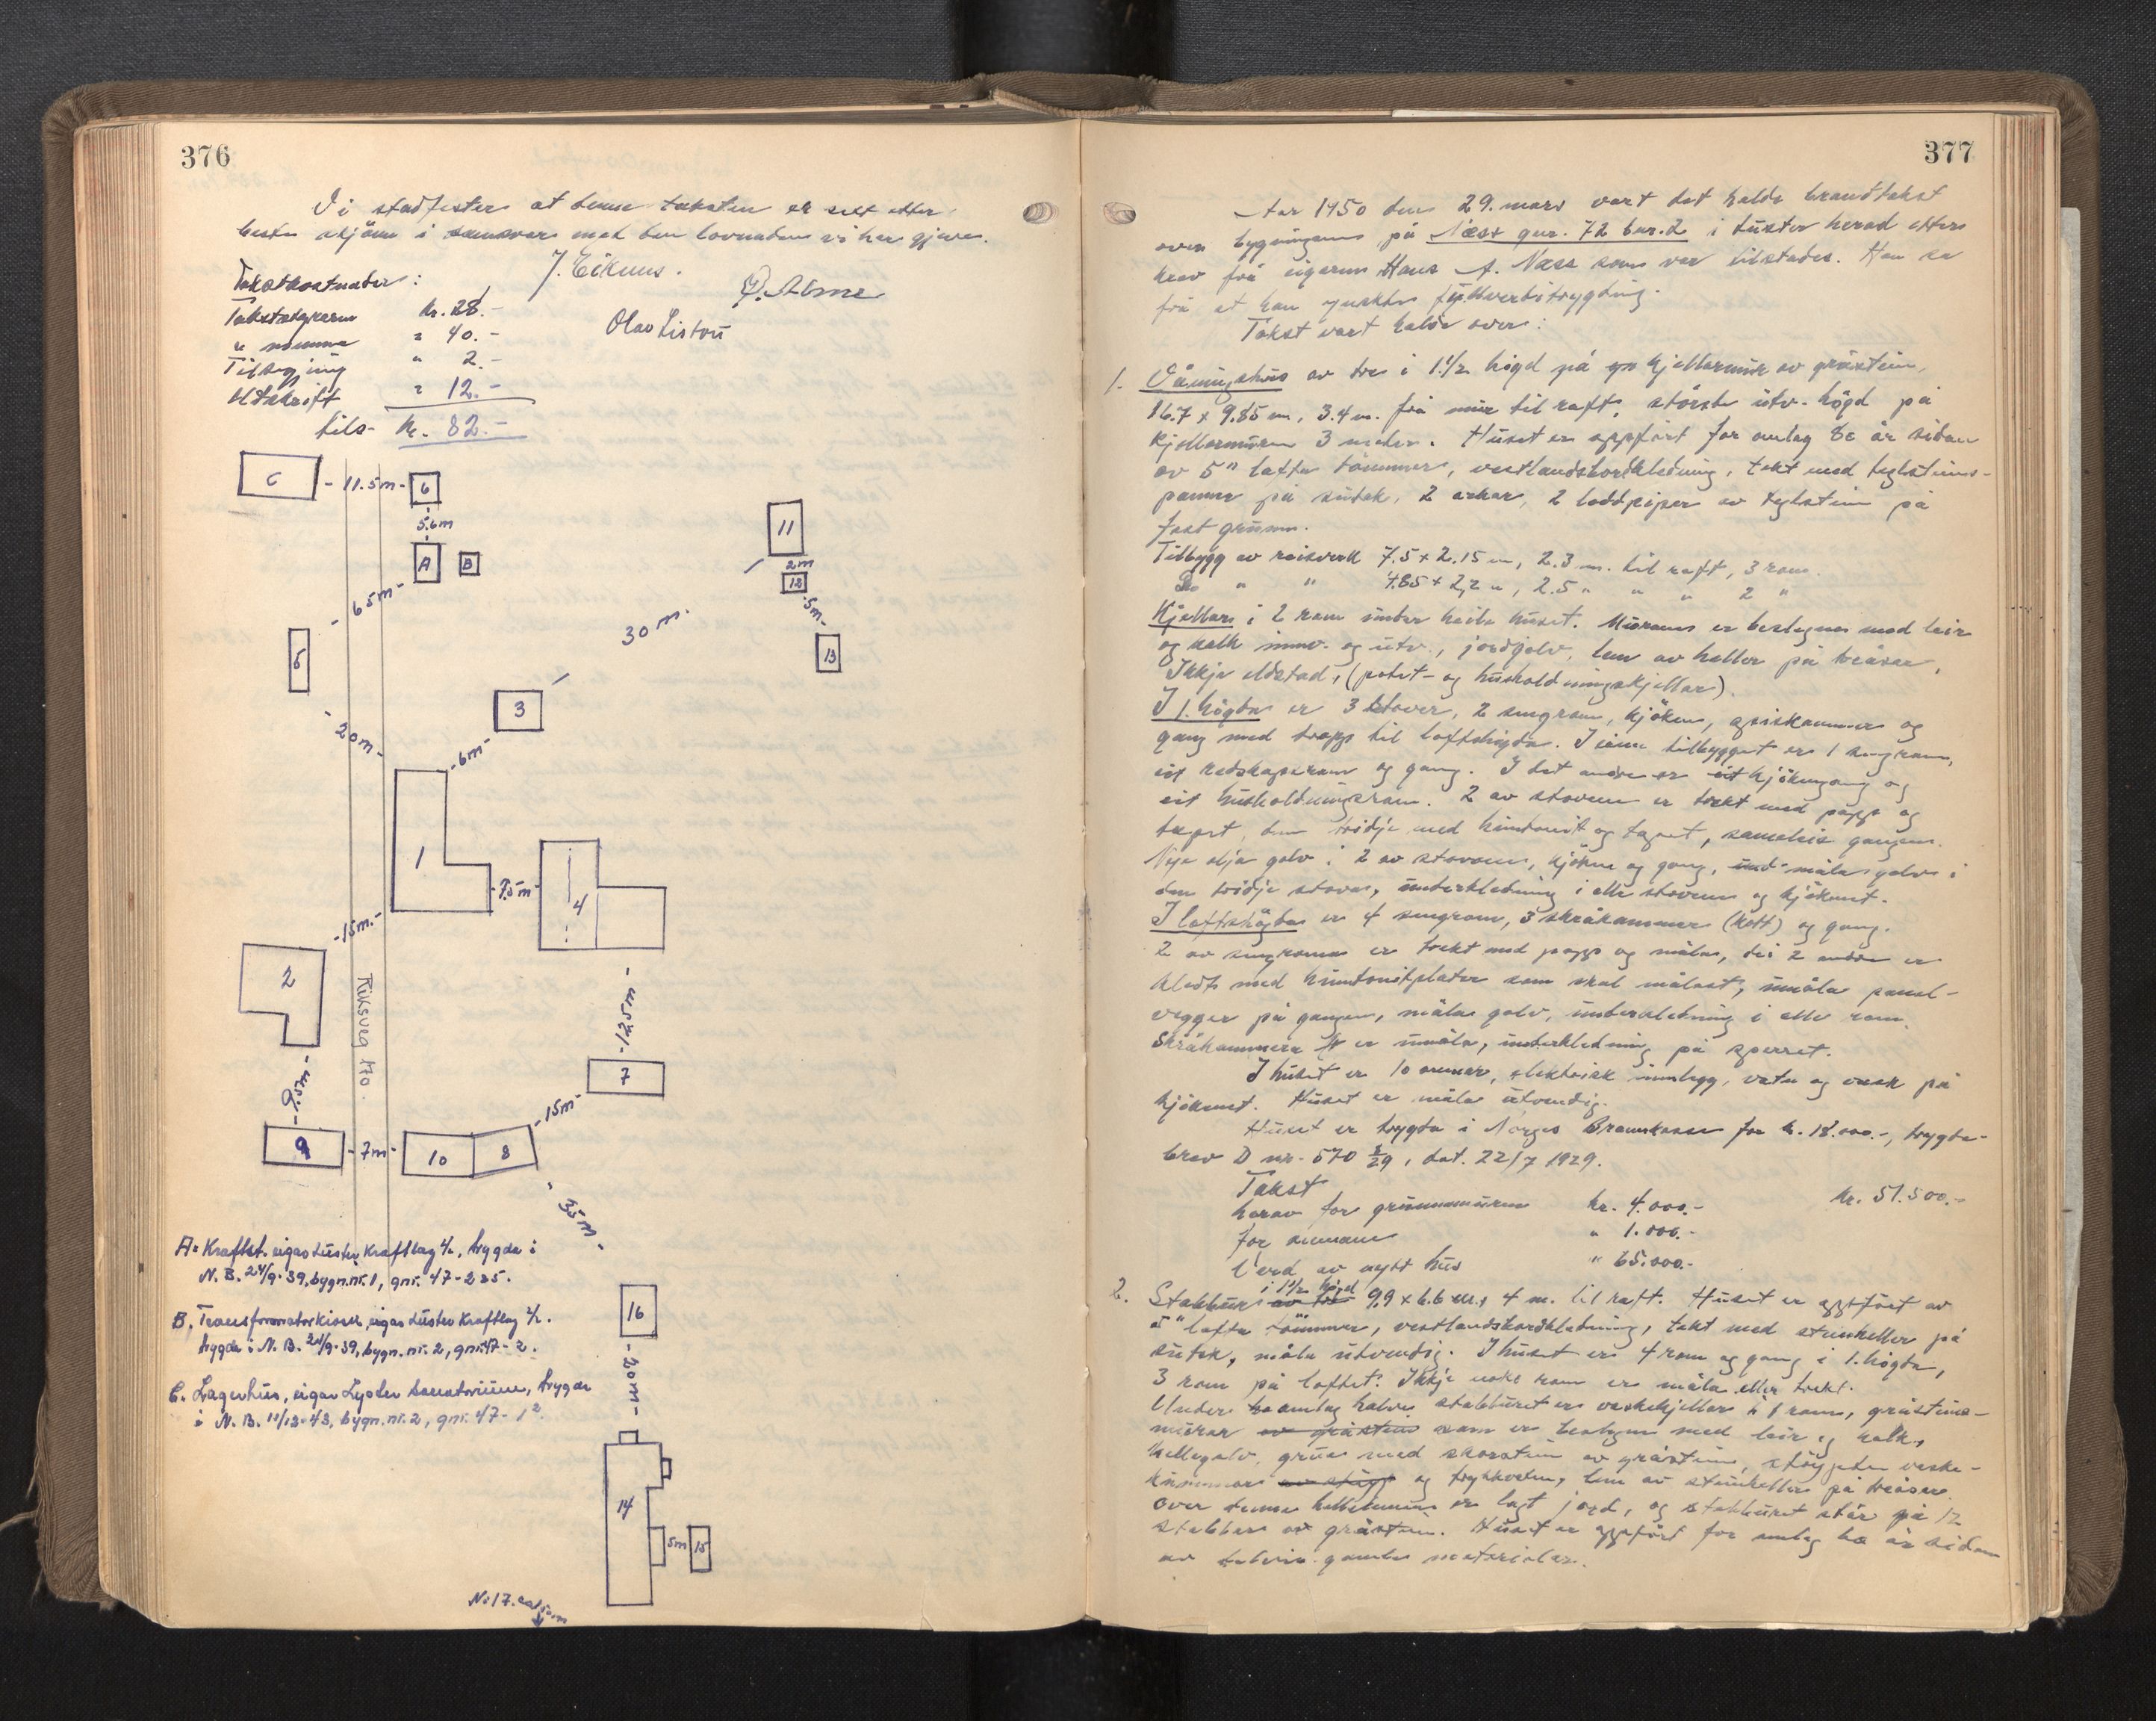 376
Vi stadfester at denne taksten er sett etter
beste skjönn i samsvar med den lovnaden vi har gjeve.
J. Eikum.
Olav Liston
Takstkostnader:
Takstutgreiarn kr. 28.-
" nemnd " 40.-
Tilsegjing " 2.-
Utskrift " 12.-
tils. kr. 82.-
C - 11.5m - 6
5.6m
A B
65m
5
11
2m
12
5m
13
30 m.
3
20m
6m
1
7.5m
4
15m.
2
Riksveg 170.
12.5m
7
9.5m
15m
9 7m 10 8
35m
A= Kraftst. eigar Luster Kraftlag A/L, trygda i
N.B. 24/9-39, bygn.nr. 1, gnr. 47-225.
B. Transformatorkiosk, eigar Luster Kraftlag A/L.
trygda i N.B. 24/9-39, bygn. nr. 2, gnr. 47-2.
C. Lagerhus, eigar Lyster Sanatorium, trygda
i N.B. 11/12-43, bygn. nr. 2, gnr. 47-1².
16
20m
14
5m 15
Nr 17.
377
År 1950 den 29. mars vart det halde brandtakst
over bygningane på Næss gnr. 72 bnr. 2 i Luster herad etter
krav frå eigaren Hans A. Næss som var tilstades. Han sa
frå at han ynskte fullverditrygding.
Takst vart halde over:
1. Våningshus av tre i 1 1/2 högd på kjellarmur av gråstein,
16.7 x 9.85 m, 3.4 m. frå mur til raft, störste utv. högd på
kjellarmuren 3 meter. Huset er oppfört for omlag 80 år sidan
av 5" lafta tömmer, vestlandsbordkledning, tekt med teglsteins-
panner på sutak, 2 arkar, 2 loddpiper av teglstein på
fast grunn.
Tilbygg av reisverk 7.5 x 2.15 m, 2.3 m. til raft, 3 rom.
Do " " 4.85 x 2,2 ", 2.5 " " " 2 "
Kjellar i 2 rom under heile huset. Murane er beslegne med leir
og kalk innv. og utv., jordgolv, lem av heller på treåsar,
Ikkje eldstad, (potet- og husholdningskjellar).
I 1. högda er 3 stover, 2 sengrom, kjöken, spiskammer og
gang med trapp til loftshögda. I eine tilbygget er 1 sengrom,
eit redskapsrom og gang. I det andre er kjökengang og
eit husholdningsrom. 2 av stovene er trekt med papp og
tapet, den tridje med huntonit og tapet, samaleis gangen.
Nye olja golv i 2 av stovene, kjöken og gang, måla golv i
den tridje stova, underkledning i alle stovene og kjökenet.
I loftshögda er 4 sengrom, 3 skråkammer (kott) og gang.
2 av sengroma er trekt med papp og måla, dei 2 andre er
kledt med huntonitplater som skal målast, umåla panel-
vegger på gangen, måla golv, underkledning i alle rom.
Skråkammera er umåla, underkledning på sperret.
I huset er 10 omnar, elektrisk innlegg, vatn og vask på
kjökenet. Huset er måla utvendig.
Huset er trygda i Norges Brannkasse for kr. 18.000.-, trygde-
brev D nr. 570 2/29, dat. 22/7 1929.
Takst kr. 51.500.-
herav for grunnmuren kr. 4.000.-
for omnane " 1.000.-
Verd av nytt hus " 65.000.-
2. Stabbur av tre i 1 1/2 högd 9.9 x 6.6 m., 4 m. til raft. Huset er oppfört av
5" lafta tömmer, vestlandsbordkledning, tekt med steinheller på
sutak, måla utvendig. I huset er 4 rom og gang i 1. högda,
3 rom på loftet. Ikkje noko rom er måla eller trekt.
Under omlag halve stabburet er vaskekjellar i 1 rom, gråsteins-
murar av gråstein som er beslegne med leir og kalk,
hellegolv, grue med skorstein av gråstein,
lem av steinheller på treåsar.
Over denne er lagt jord, og stabburet står på 12
stabbar av gråstein. Huset er oppfört for omlag år sidan
av delvis gamle materialar.